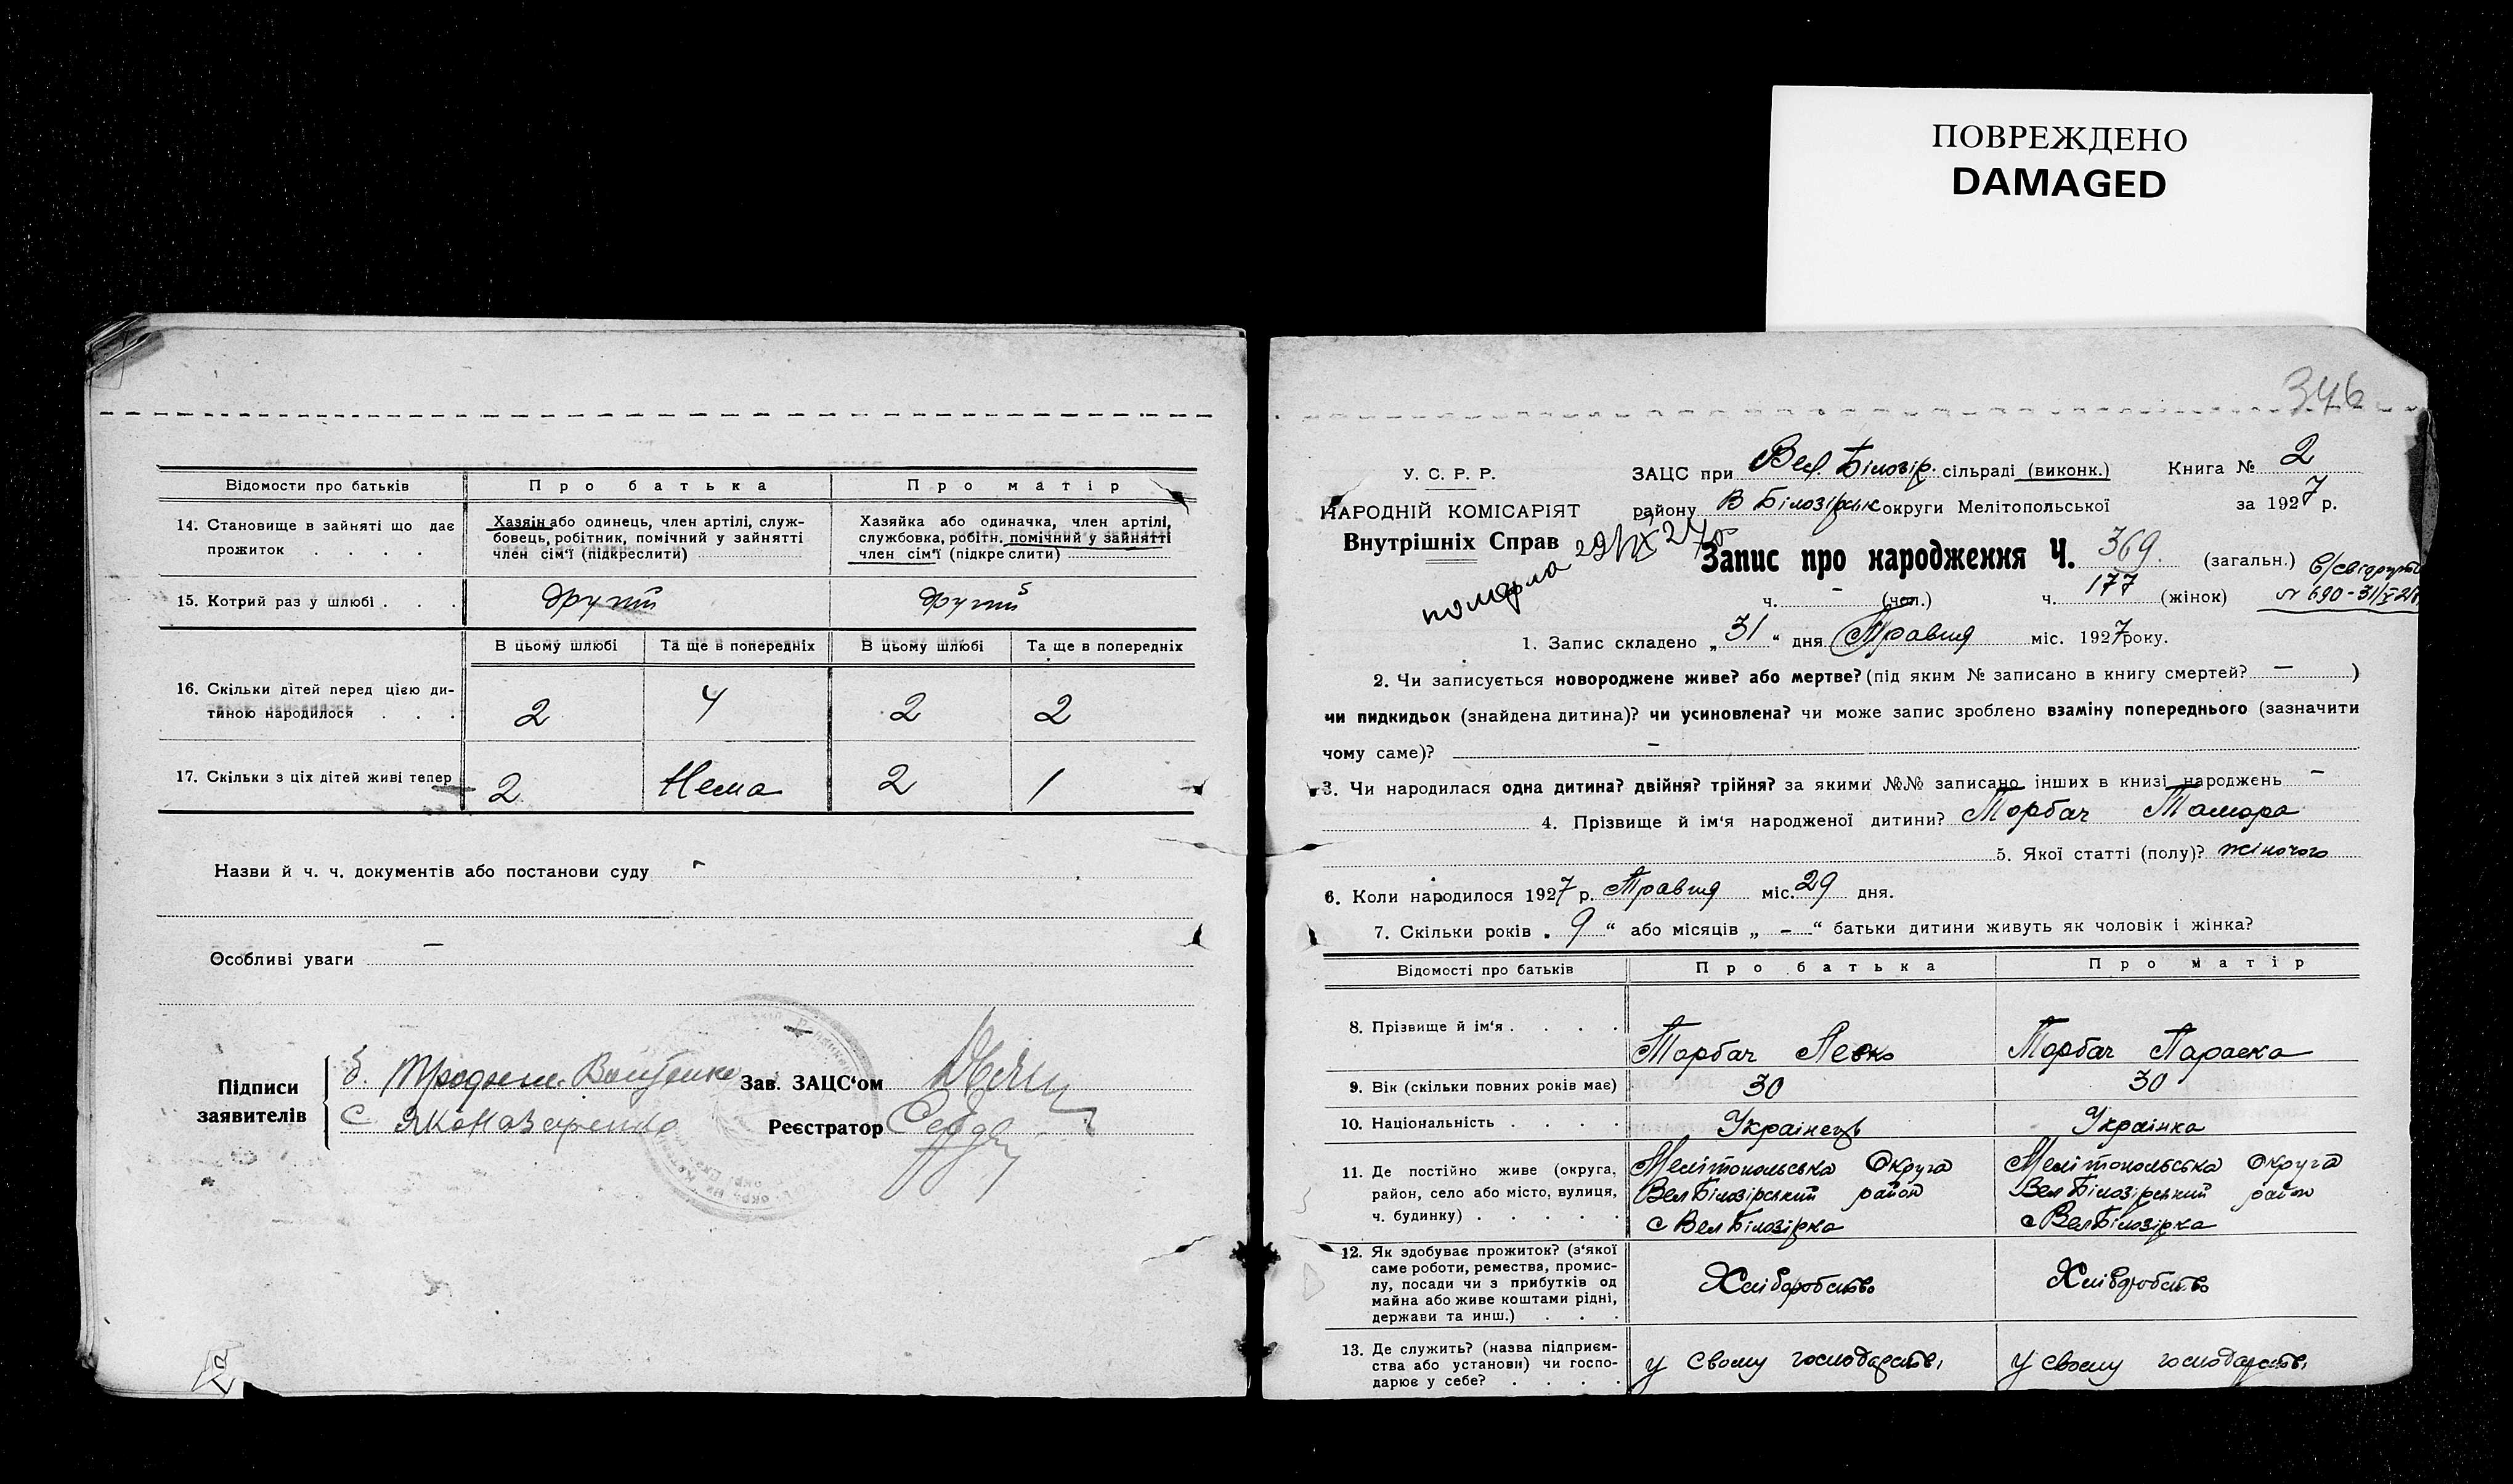 ПОВРЕЖДЕНО
DAMAGED
Відомости про батьків
Про батька
Про матір
14. Становище в зайняті що дає прожиток . . . .
Хазяїн або одинець, член артілі, служ-
бовець, робітник, помічний у зайнятті
член сім'ї (підкреслити)
Хазяйка або одиначка, член артілі,
службовка, робітн. помічний у зайнятті
член сім'ї (підкреслити)
15. Котрий раз у шлюбі . . .
другий
другий
В цьому шлюбі
Та ще в попередніх
В цьому шлюбі
Та ще в попередніх
16. Скільки дітей перед цією ди-
тиною народилося . . .
2
4
2
2
17. Скільки з ціх дітей живі тепер
2
Нема
2
1
Назви й ч. ч. документів або постанови суду
Особливі уваги –
Підписи
заявителів
Зав. ЗАЦС'ом
Реєстратор
346
У. С. Р. Р.
НАРОДНІЙ КОМІСАРІЯТ
Внутрішніх Справ
ЗАЦС при Вел. Білозір. сільраді (виконк.) Книга № 2
району В Білозірськ округи Мелітопольської за 1927 р.
Запис про народження Ч. 369. (загальн.)
померла
ч. – (чол.) ч. 177 (жінок)
№ 690 - 31/V
1. Запис складено „31“ дня Травня міс. 1927 року.
2. Чи записується новороджене живе? або мертве? (під яким № записано в книгу смертей? – )
чи пидкидьок (знайдена дитина)? чи усиновлена? чи може запис зроблено взаміну попереднього (зазначити
чому саме)? –
3. Чи народилася одна дитина? двійня? трійня? за якими №№ записано інших в книзі народжень –
4. Прізвище й ім'я народженої дитини? Торбач Тамара
5. Якої статті (полу)? жіночого
6. Коли народилося 1927 р. Травня міс. 29 дня.
7. Скільки років „9“ або місяців „ – “ батьки дитини живуть як чоловік і жінка?
Відомості про батьків
Про батька
Про матір
8. Прізвище й ім'я . . . .
Торбач Левко
Торбач Параска
9. Вік (скільки повних років має)
30
30
10. Національність . . . .
Українець
Українка
11. Де постійно живе (округа,
район, село або місто, вулиця,
ч. будинку) . . . . .
Мелітопольська Округа
Вел Білозірський район
с Вел Білозірка
Мелітопольська округа
Вел Білозірський район
с Вел Білозірка
12. Як здобуває прожиток? (з'якої
саме роботи, ремества, промис-
лу, посади чи з прибутків од
майна або живе коштами рідні,
держави та инш.) . . .
Хліборобство
Хліборобство
13. Де служить? (назва підприєм-
ства або установи) чи госпо-
дарює у себе? . . . .
у своему господарстві
у своему господарстві